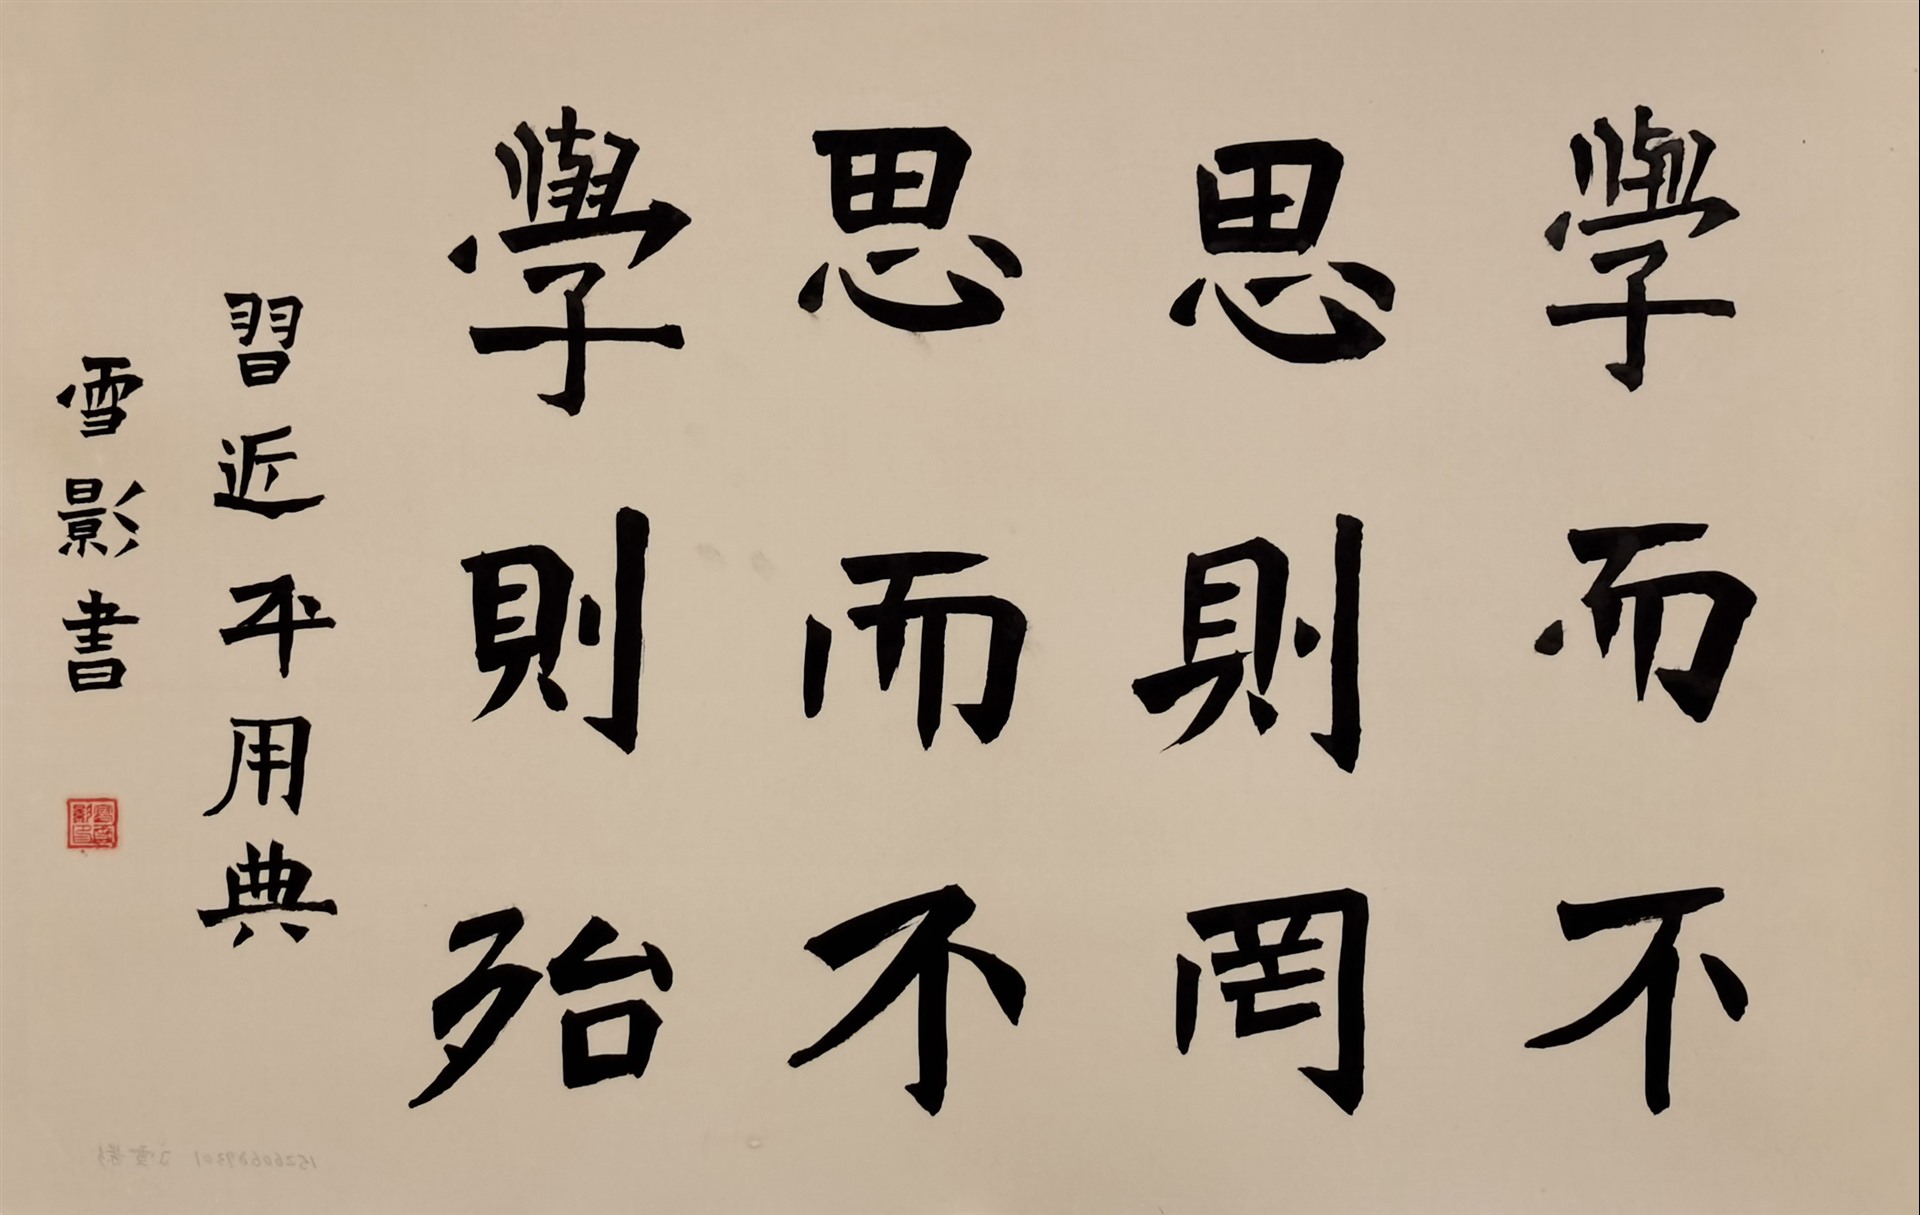 學而不
思則罔
思而不
學則殆
習近平用典
雪影書